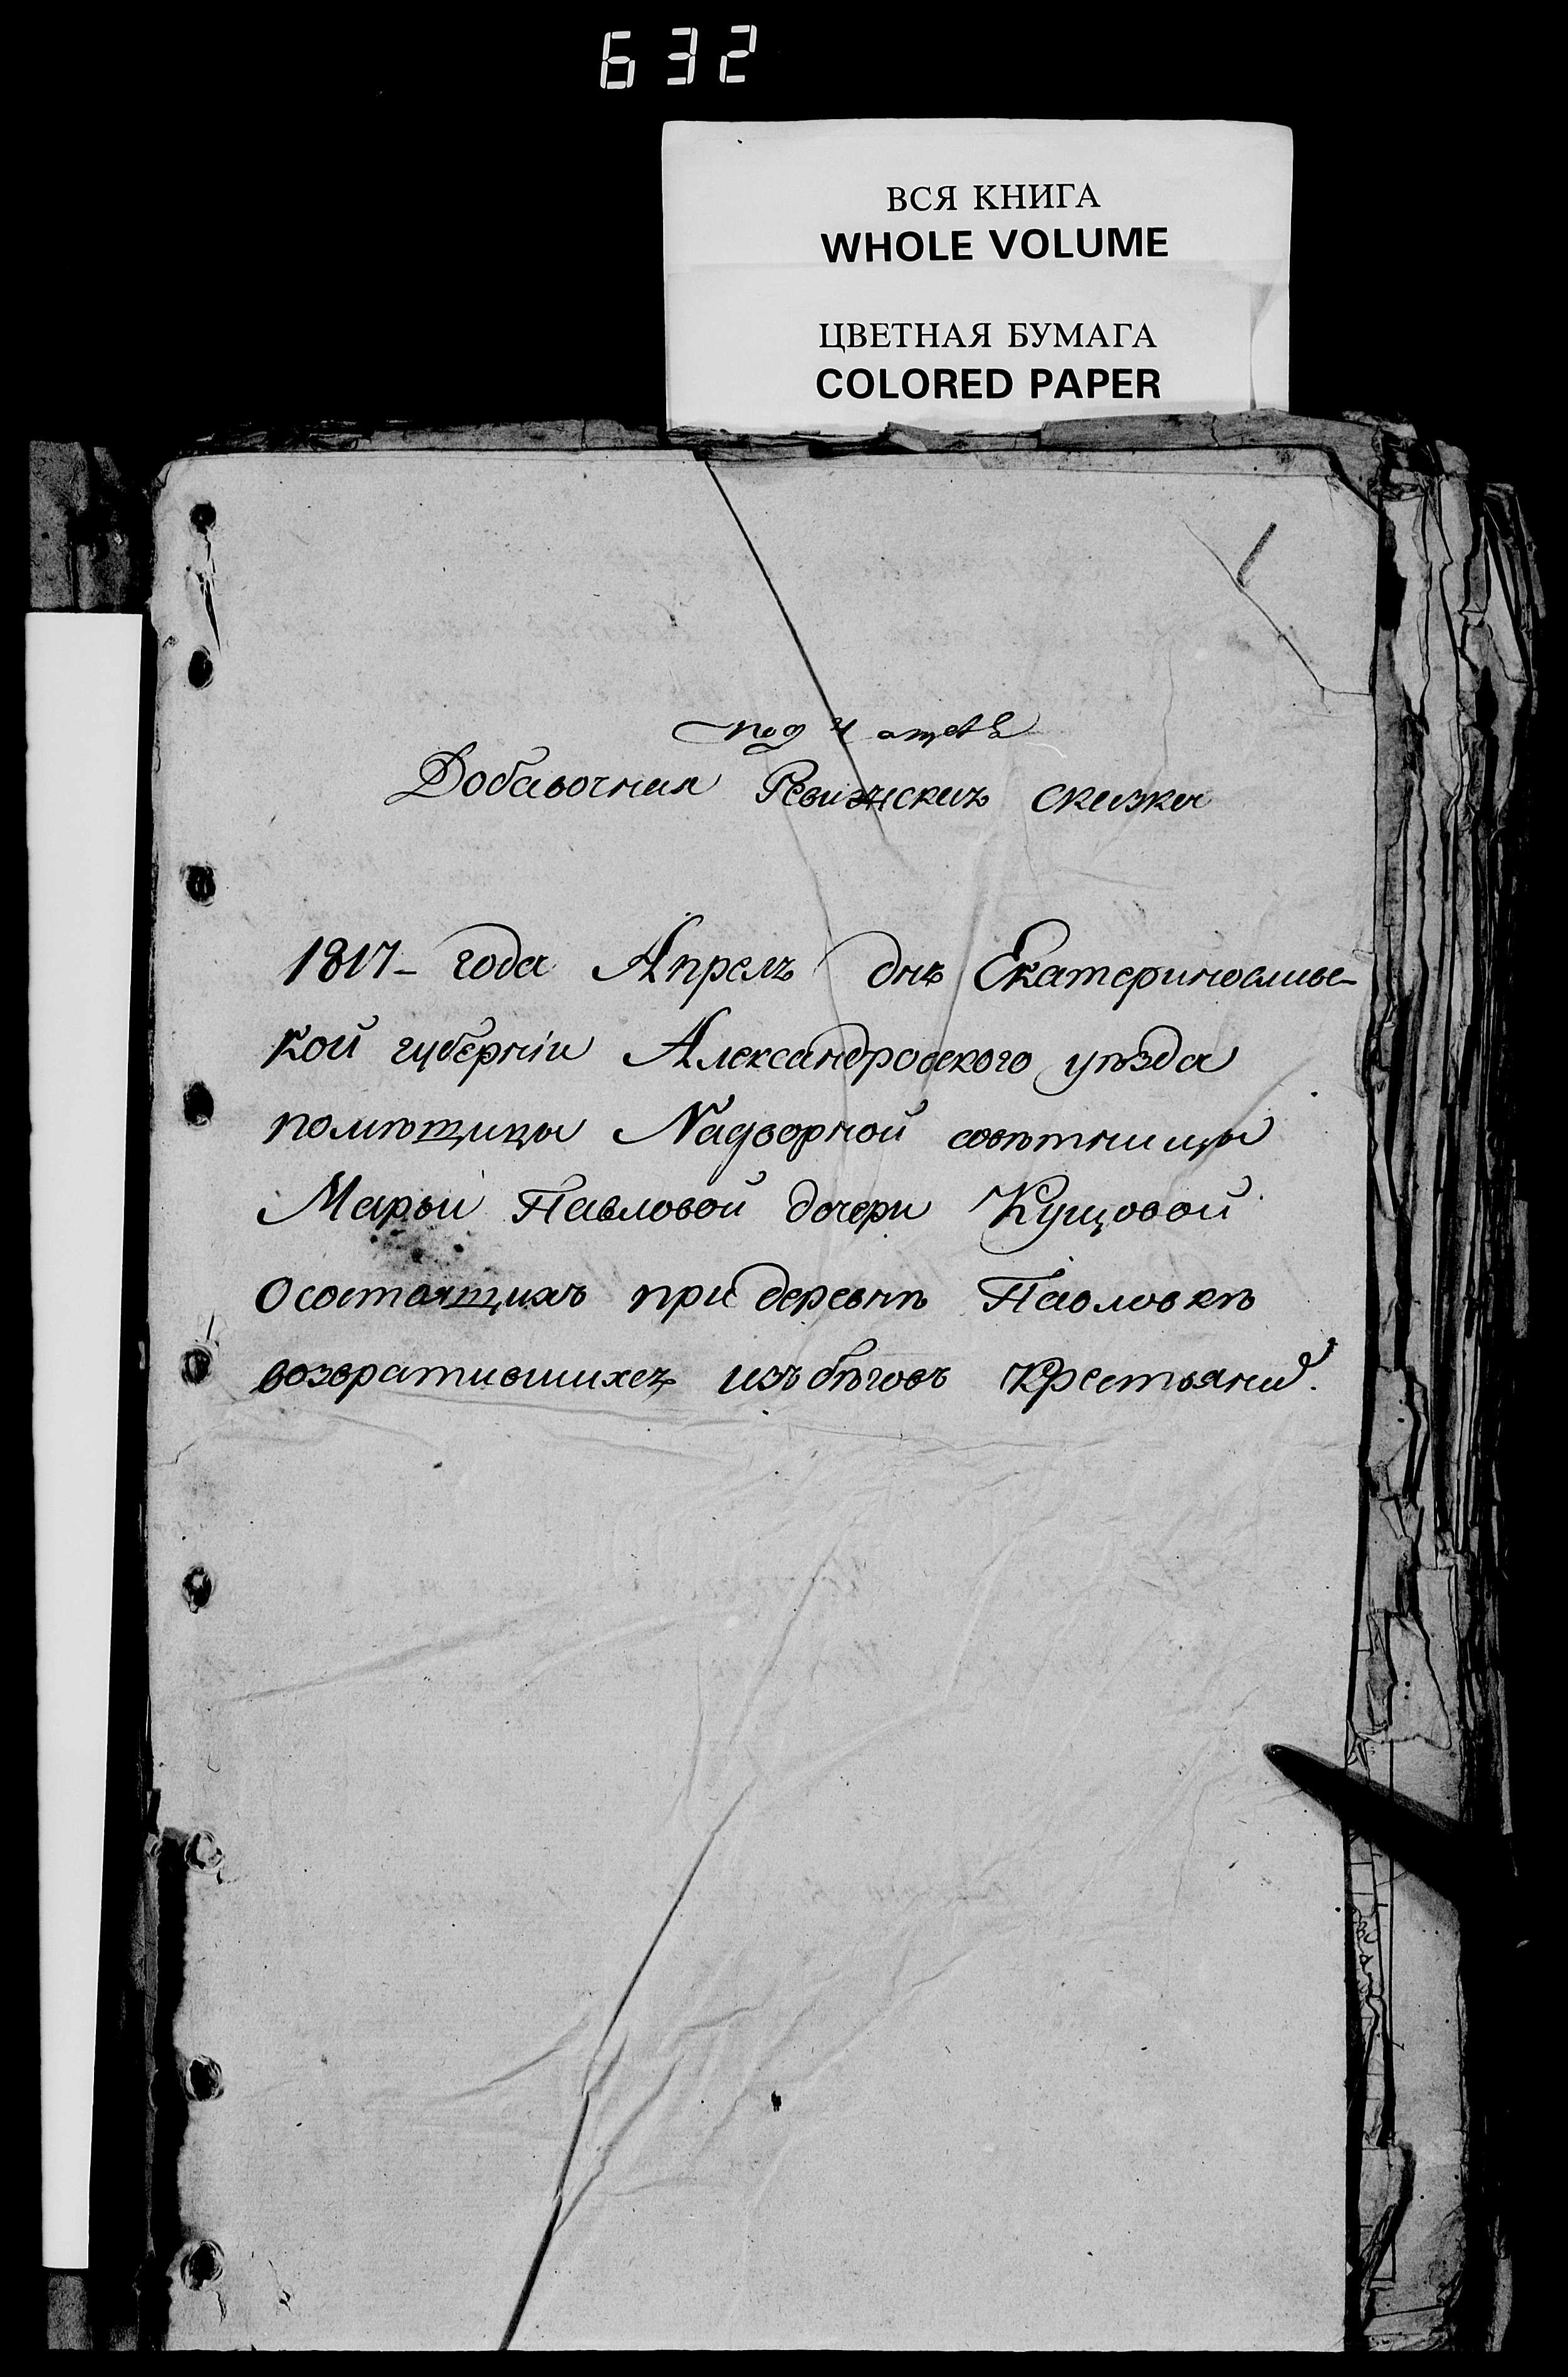 632
ВСЯ КНИГА
WHOLE VOLUME
ЦВЕТНАЯ БУМАГА
COLORED PAPER
1
под
Добавочная Ревижская сказка
1817- года Апреля дня Екатеринославс-
кой губерніи Александровского уѣзда
помѣщицы Надворной совѣтницы
Марьи Павловой дочери Кущовой
О состоящихъ при деревнѣ Павловкѣ
возвратившихся изъ бѣговъ Крестьянѣ.